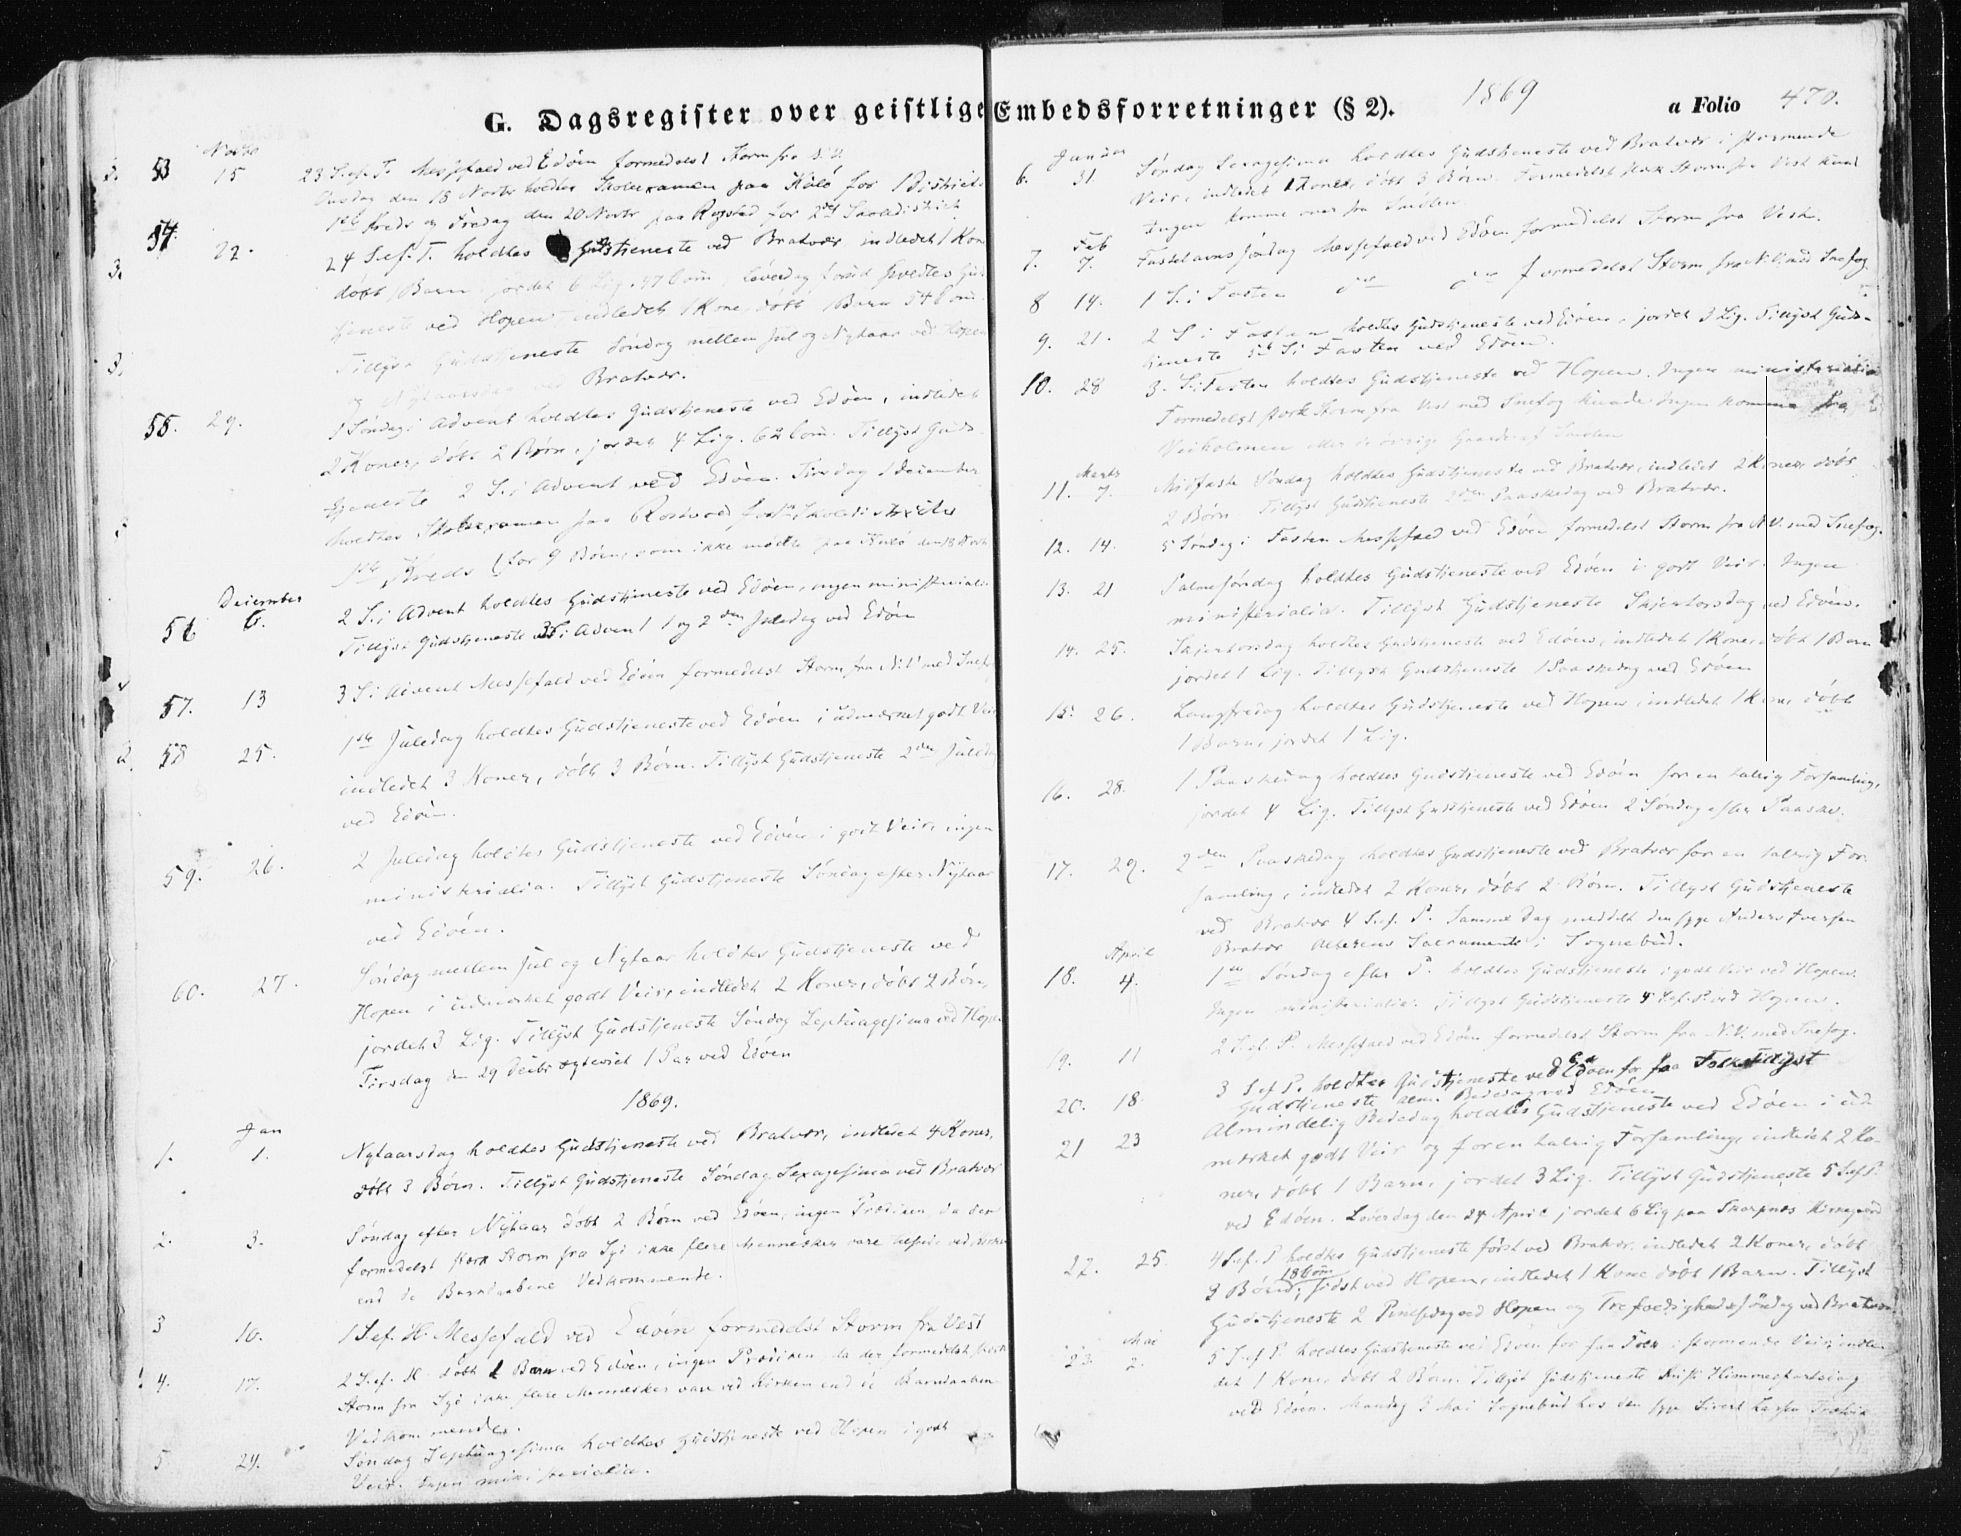 G. Dagsregister over geistlige Embedsforretninger (§ 2).
1869
a Folio 470.
Novbr
53 15 23 S.ef.T. Messefald ved Edöen formedelst Storm fra N.V.
Onsdag den 18 Novbr holdtes Skoleexamen paa Kulö for 1 Districts
1ste Kreds og Fredag den 20 Novbr paa Rosvold for 2det Skoledistrict
54. 22. 24 S.ef.T. holdtes Gudstjeneste ved Bratvær indledet 1 Kone
döbt 1 Barn, jordet 6 Lig, 47 Com. Löverdag forud holdtes Gud-
tjeneste ved Hopen, indledet 1 Kone, döbt 1 Barn 54 Com.
Tillyst Gudstjeneste Söndag mellem Jul og Nytaar ved Hopen
og Nytaarsdag ved Bratvær.
55. 29. 1 Söndag i Advent holdtes Gudstjeneste ved Edöen, indledet
2 Koner, döbt 2 Börn, jordet 4 Lig. 62 Com. Tillyst Guds-
tjeneste 2 S. i Advent ved Edöen. Tirsdag 1 December
holdtes Skoleexamen paa Rosvold for 1ste Skoledistricts
1ste Kreds (for 9 Börn, som ikke mödte paa Kulö den 18 Novbr
December
56 6. 2 S. i Advent holdtes Gudstjeneste ved Edöen, ingen ministerialia
Tillyst Gudstjeneste 3 S. i Advent 1 og 2den Juledag ved Edöen
57. 13 3 S. i Advent Messefald ved Edöen formedelst Storm fra N.V. med Snefog
58 25. 1ste Juledag holdtes Gudstjeneste ved Edöen i udmærket godt Veir
indledet 3 Koner, döbt 3 Börn. Tillyst Gudstjeneste 2den Juledag
ved Edöen.
59. 26. 2 Juledag holdtes Gudstjeneste ved Edöen i godt Veir, ingen
ministerialia. Tillyst Gudstjeneste Söndag efter Nytaar
ved Edöen.
60. 27. Söndag mellem Jul og Nytaar holdtes Gudstjeneste ved
Hopen i udmærket godt Veir, indledet 2 Koner, döbt 2 Börn,
jordet 3 Lig. Tillyst Gudstjeneste Söndag Septuagesima ved Hopen
Tirsdag den 29 Decbr ægteviet 1 Par ved Edöen
1869.
Jan
1. 1. Nytaarsdag holdtes Gudstjeneste ved Bratvær, indledet 4 Koner,
döbt 3 Börn. Tillyst Gudstjeneste Söndag Sexagesima ved Bratvær
2. 3. Söndag efter Nytaar döbt 2 Börn ved Edöen, ingen Prædiken, da der
formedelst stærk Storm fra Syd ikke flere Mennesker vare tilstede ved Kirken
end de Barndaabene Vedkommende.
3 10. 1 S.ef.H. Messefald ved Edöen formedelst Storm fra Vest
4. 17. 2 S.ef.H. döbt 1 Barn ved Edöen, ingen Prædiken da der formedelst stærk
Storm fra Syd ikke flere Mennesker vare ved Kirken end de Barndaaben
Vedkommende.
5. 24. Söndag Septuagesima holdtes Gudstjeneste ved Hopen i godt
Veir. Ingen ministerialia.
Januar
6. 31 Söndag Sexagesima holdtes Gudstjeneste ved Bratvær i stormende
Veir, indledet 2 Koner, döbt 3 Börn. Formedelst stærk Storm fra Vest kunde
Ingen komme over fra Smölen
Feb
7. 7. Fastelavns Söndag Messefald ved Edöen formedelst Storm fra Vest.
8 14. 1 S. i Fasten do do formedelst Storm fra N.V. med Snefog
9. 21. 2 S. i Fasten holdtes Gudstjeneste ved Edöen, jordet 3 Lig. Tillyst Guds-
tjeneste 5te S. i Fasten ved Edöen.
10. 28 3. S. i Fasten holdtes Gudstjeneste ved Hopen. Ingen ministerialia
Formedelst stærk Storm fra Vest med Snefog kunde Ingen komme fra
Veiholmen eller de övrige Gaarde af Smölen
Marts
11. 7. Midfaste Söndag holdtes Gudstjeneste ved Bratvær, indledet 2 Koner, döbt
2 Börn. Tillyst Gudstjeneste 2den Paaskedag ved Bratvær.
12. 14. 5 Söndag i Fasten Messefald ved Edöen formedelst Storm fra N.V. med Snefog.
13. 21 Palmesöndag holdtes Gudstjeneste ved Edöen i godt Veir. Ingen
ministerialia. Tillyst Gudstjeneste Skjertorsdag ved Edöen.
14. 25. Skjertorsdag holdtes Gudstjeneste ved Edöen, indledet 1 Kone, döbt 1 Barn
jordet 1 Lig. Tillyst Gudstjeneste 1 Paaskedag ved Edöen
15. 26. Langfredag holdtes Gudstjeneste ved Hopen, indledet 1 Kone, döbt
1 Barn, jordet 1 Lig.
16. 28. 1 Paaskedag holdtes Gudstjeneste ved Edöen for en talrig Forsamling,
jordet 4 Lig. Tillyst Gudstjeneste ved Edöen 2 Söndag efter Paaske.
17. 29. 2den Paaskedag holdtes Gudstjeneste ved Bratvær for en talrig For-
samling, indledet 2 Koner, döbt 2 Börn. Tillyst Gudstjeneste
ved Bratvær 4 S.ef.P. Samme Dag meddelt den syge Anders Iversen
Bratvær Alterens Sacramente i Sognebud.
April
18. 4. 1ste Söndag efter P. holdtes Gudstjeneste i godt Veir ved Hopen.
Ingen ministerialia. Tillyst Gudstjeneste 4 S.ef.P. ved Hopen.
19. 11 2 S.ef.P. Messefald ved Edöen formedelst Storm fra N.V. med Snefog.
20. 18 3 S.ef.P. holdtes Gudstjeneste ved Edöen for faa Folk. Tillyst
Gudstjeneste alm. Bededag ved Edöen
21 23 Almindelig Bededag holdtes Gudstjeneste ved Edöen i ud-
mærket godt Veir og for en talrig Forsamling, indledet 2 Ko-
ner, döbt 1 Barn, jordet 3 Lig. Tillyst Gudstjeneste 5 S.ef.P.
ved Edöen. Löverdag den 24 April jordet 6 Lig paa Skarpnes Kirkegaard
22. 25. 4 S.ef.P. holdtes Gudstjeneste först ved Bratvær, indledet 2 Koner, döbt
3 Börn, 18 Com sidst ved Hopen, indledet 1 Kone döbt 1 Barn. Tillyst
Gudstjeneste 2 Pintsedag ved Hopen og Trefoldigheds Söndag ved Bratvær.
Mai
23. 2. 5 S.ef.P. holdtes Gudstjeneste ved Edöen for faa Folk i stormende Veir, indle-
det 1 Kone, döbt 2 Börn. Tillyst Gudstjeneste Kristi Himmelfartsdag
ved Edöen. Mandag 3 Mai Sognebud hos den syge Sivert Larsen